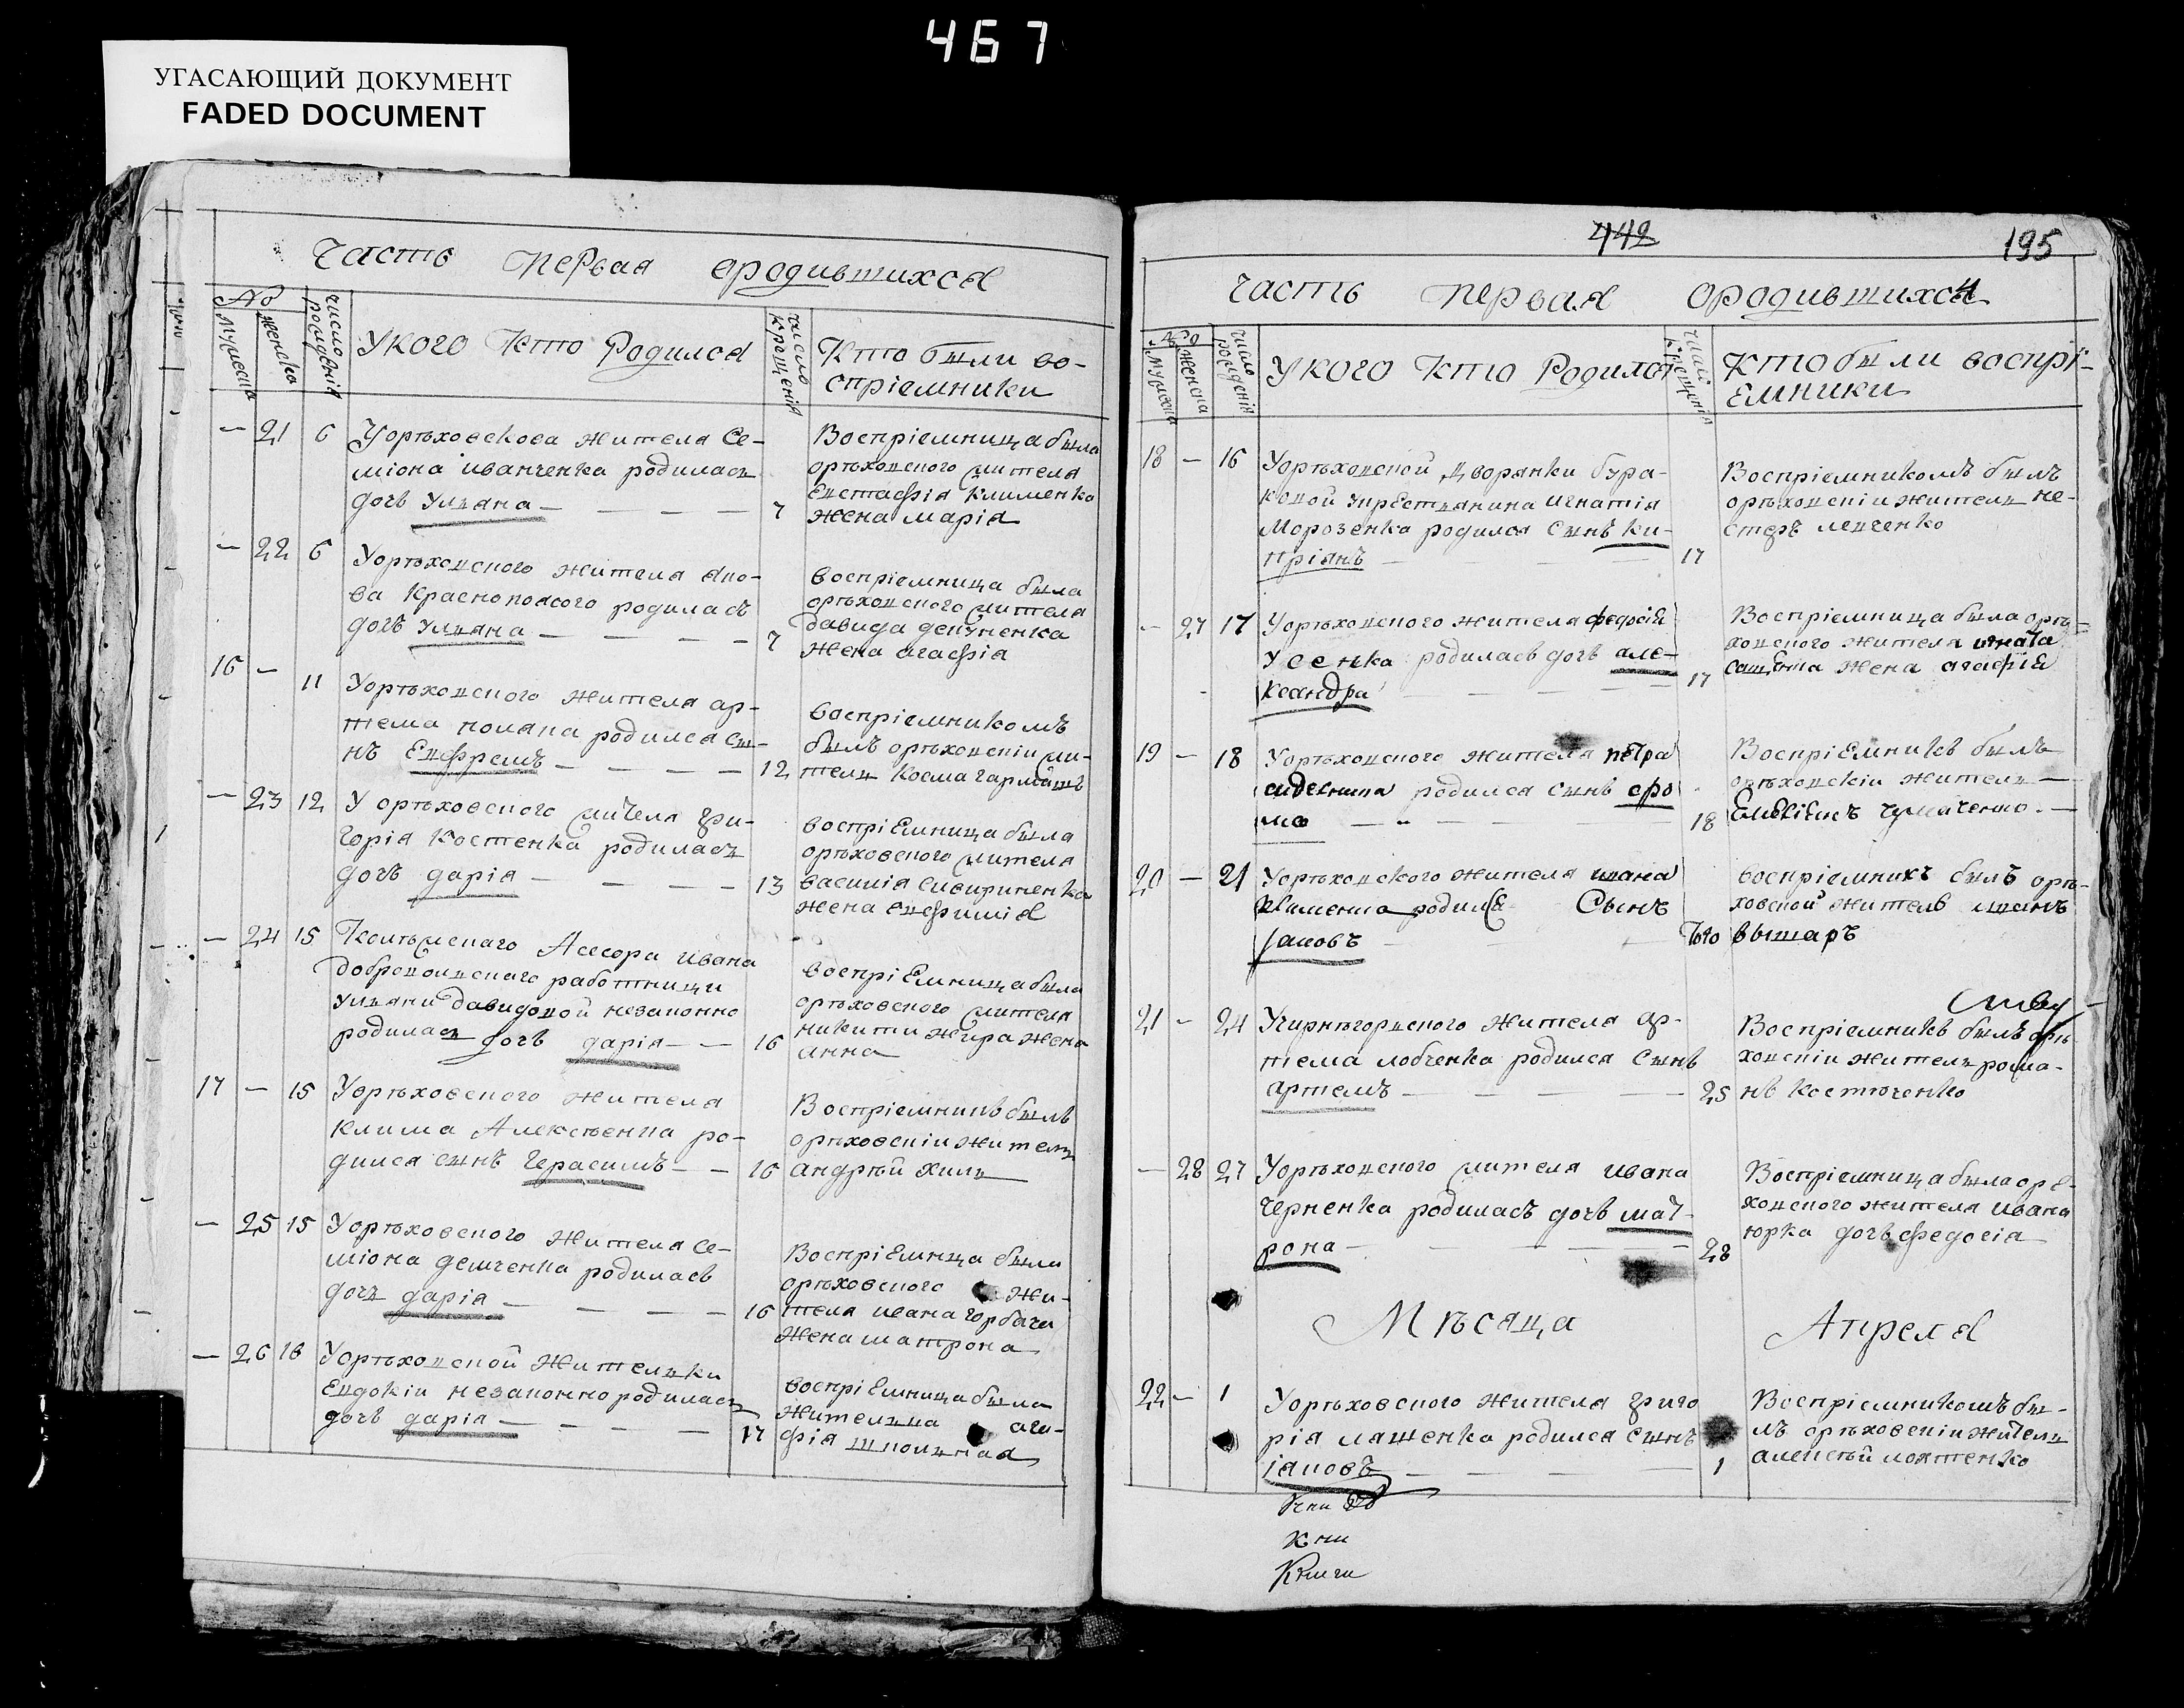 467
УГАСАЮЩИЙ ДОКУМЕНТ
FADED DOCUMENT
Часть первая ородившихся
№
мужеска
женска
число рождения
У кого кто родился
число крещения
Кто были во-
спріемники
— 21 6 У орѣховскова жителя Се-
міона иванченка родилась
дочь Ульяна — 7
Воспріемница была
орѣховского жителя
Евстафія Клименка
жена марія
— 22 6 У орѣховского жителя
родилась
дочь Ульяна — 7
воспріемница была
орѣховского жителя
давида
жена агафія
16 — 11 У орѣховского жителя ар-
тема родился сы-
нъ Евфремъ — 12
воспріемникомъ
былъ орѣховскіи жи-
тель Косма
— 23 12 У орѣховского жителя гри-
горія Костенка родилась
дочь дарія — 13
воспріемница была
орѣховского жителя
василія
жена евфимія
— 24 15 Асесора ивана
работници
ульяни давидовой незаконно
родилась дочь дарія — 16
воспріемница была
орѣховского жителя
никити жира жена
анна
17 — 15 У орѣховского жителя
клима Алексѣенка ро-
дился сынъ Герасимъ — 16
Воспріемникъ былъ
орѣховскіи житель
андрѣй хиль
— 25 15 У орѣховского жителя се-
міона демченка родилась
дочь дарія — 16
Воспріемница была
орѣховского жи-
теля ивана горбача
жена матрона
— 26 16 У орѣховской жительки
Евдокіи незаконно родилась
дочь дарія — 17
воспріемница была
жителька ага-
фія
442
195
Часть первая ородившихся
№
мужеска
женска
число рождения
У кого кто родился
число крещения
Кто были воспрі-
емники
18 — 16 У орѣховской дворянки бура-
ковой у крестьянина игнатія
Морозенка родился сынъ ки-
пріянъ — 17
Воспріемникомъ былъ
орѣховскіи житель не-
стеръ левченко
— 27 17 У орѣховского жителя федосія
Усенка родилась дочь але-
ксандра — 17
Воспріемница была орѣ-
ховского жителя игната
жена агафія
19 — 18 У орѣховского жителя петра
родился сынъ
18
Воспріемникъ былъ
орѣховскіи житель —
20 — 21 У орѣховского жителя ивана
клименка родился Сынъ
Iаковъ —
воспріемникъ былъ орѣ-
ховской житель иванъ
21 — 24 жителя ар-
тема лобченка родился сынъ
артемъ — 25
Воспріемникъ былъ орѣ
ховскіи житель рома-
нъ Костюченко
— 28 27 У орѣховского жителя ивана
Черненка родилась дочь мат-
рона — 28
Воспріемница была орѣ-
ховского жителя ивана
юрка дочь федосія
Мѣсяца Апреля
22 — 1 У орѣховского жителя григо
рія лашенка родился сынъ
іаковъ — 1
Воспріемникомъ бы-
лъ орѣховскіи житель
алексѣй
кни
Книги